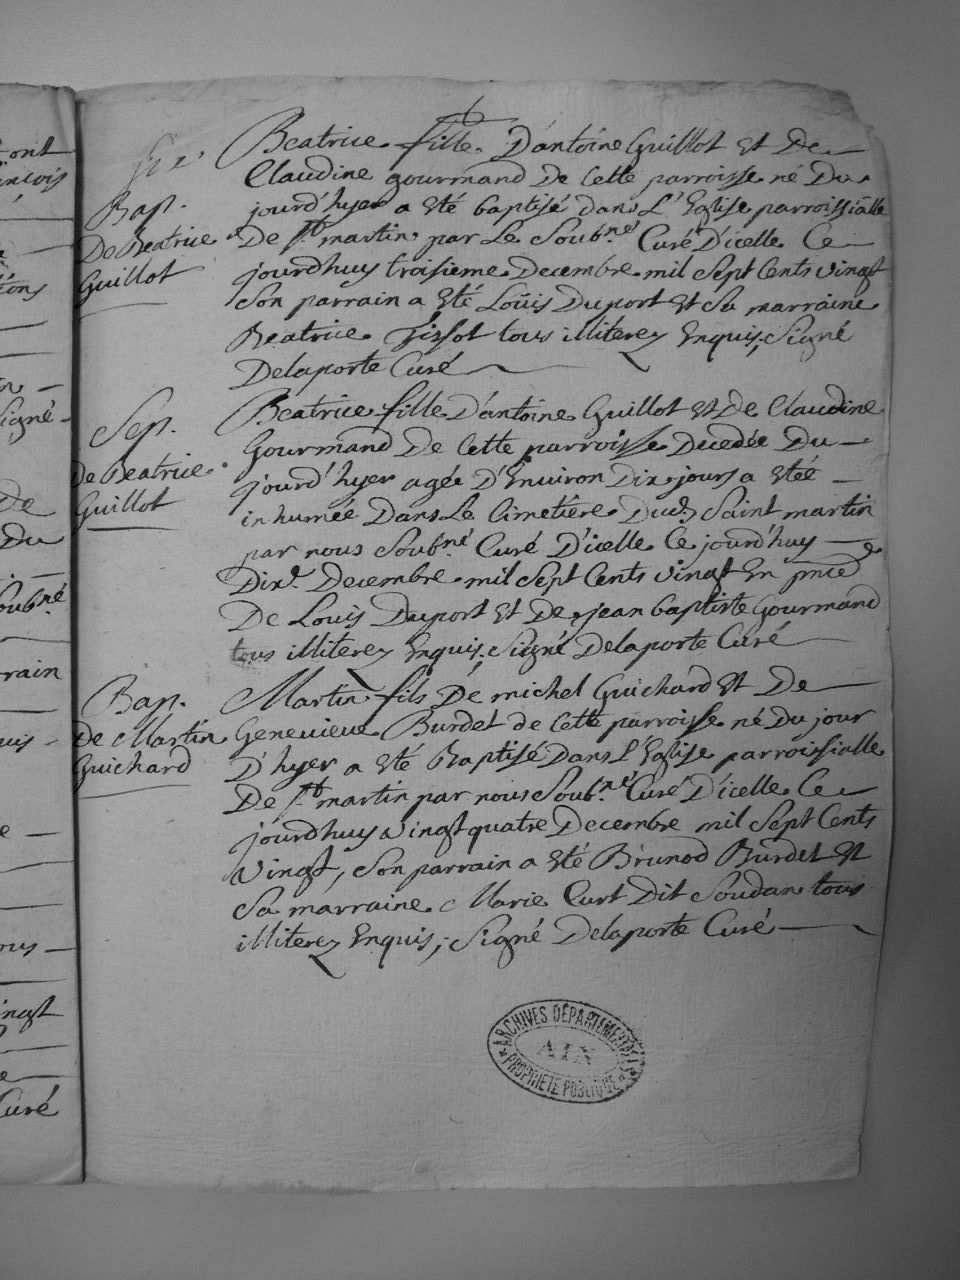 6
Beatrice fille D'antoine Guillot et De
Claudine gourmand De Cette parroisse né Du
jourd'hyer a eté baptisé dans L'Eglise parroissialle
De St martin par Le Soubné Curé D'icelle Ce
jourdhuy troisieme Decembre mil Sept Cents vingt
Son parrain a eté Loüis Duport et Sa marraine
Beatrice Tissot tous illiterez Enquis; Signé
Delaporte Curé
Bap.
De Beatrice
Guillot
Beatrice fille D'antoine Guillot et De Claudine
Gourmand De Cette parroisse Decedée Du
jourd'hyer agée D'Environ Dix jours a etée
inhumée Dans Le Cimetiere Dud. Saint martin
par nous Soubné Curé D'icelle Ce jourd'huy
Dixe Decembre mil Sept Cents vingt En pnce
De Louis Duport et De jean baptiste Gourmand
tous illiterez Enquis. Signé Delaporte Curé
Sep.
de Beatrice
Guillot
Martin fils De michel Guichard et De
Genevieve Burdet de Cette parroisse né Du jour
D'hyer a eté Baptisé Dans L'Eglise parroissialle
De St martin par nous Soubné Curé D'icelle Ce
jourdhuy vingt quatre Decembre mil Sept Cents
vingt, Son parrain a eté Brunod Burdet et
Sa marraine Marie Curt Dit Soudan tous
illiterez Enquis; Signé Delaporte Curé
Bap.
De Martin
Guichard
ARCHIVES DÉPARTEMENTALES
AIN
PROPRIÉTÉ PUBLIQUE